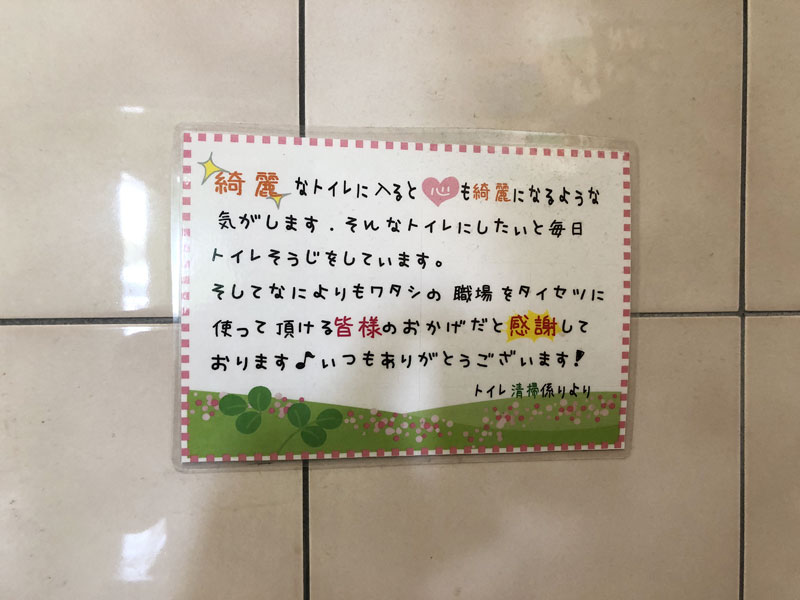 綺麗なトイレに入ると心も綺麗になるような
気がします.そんなトイレにしたいと毎日
トイレそうじをしています。
そしてなによりもワタシの職場をタイセツに
使って頂ける皆様のおかげだと感謝して
おります♪いつもありがとうございます!
トイレ清掃係りより